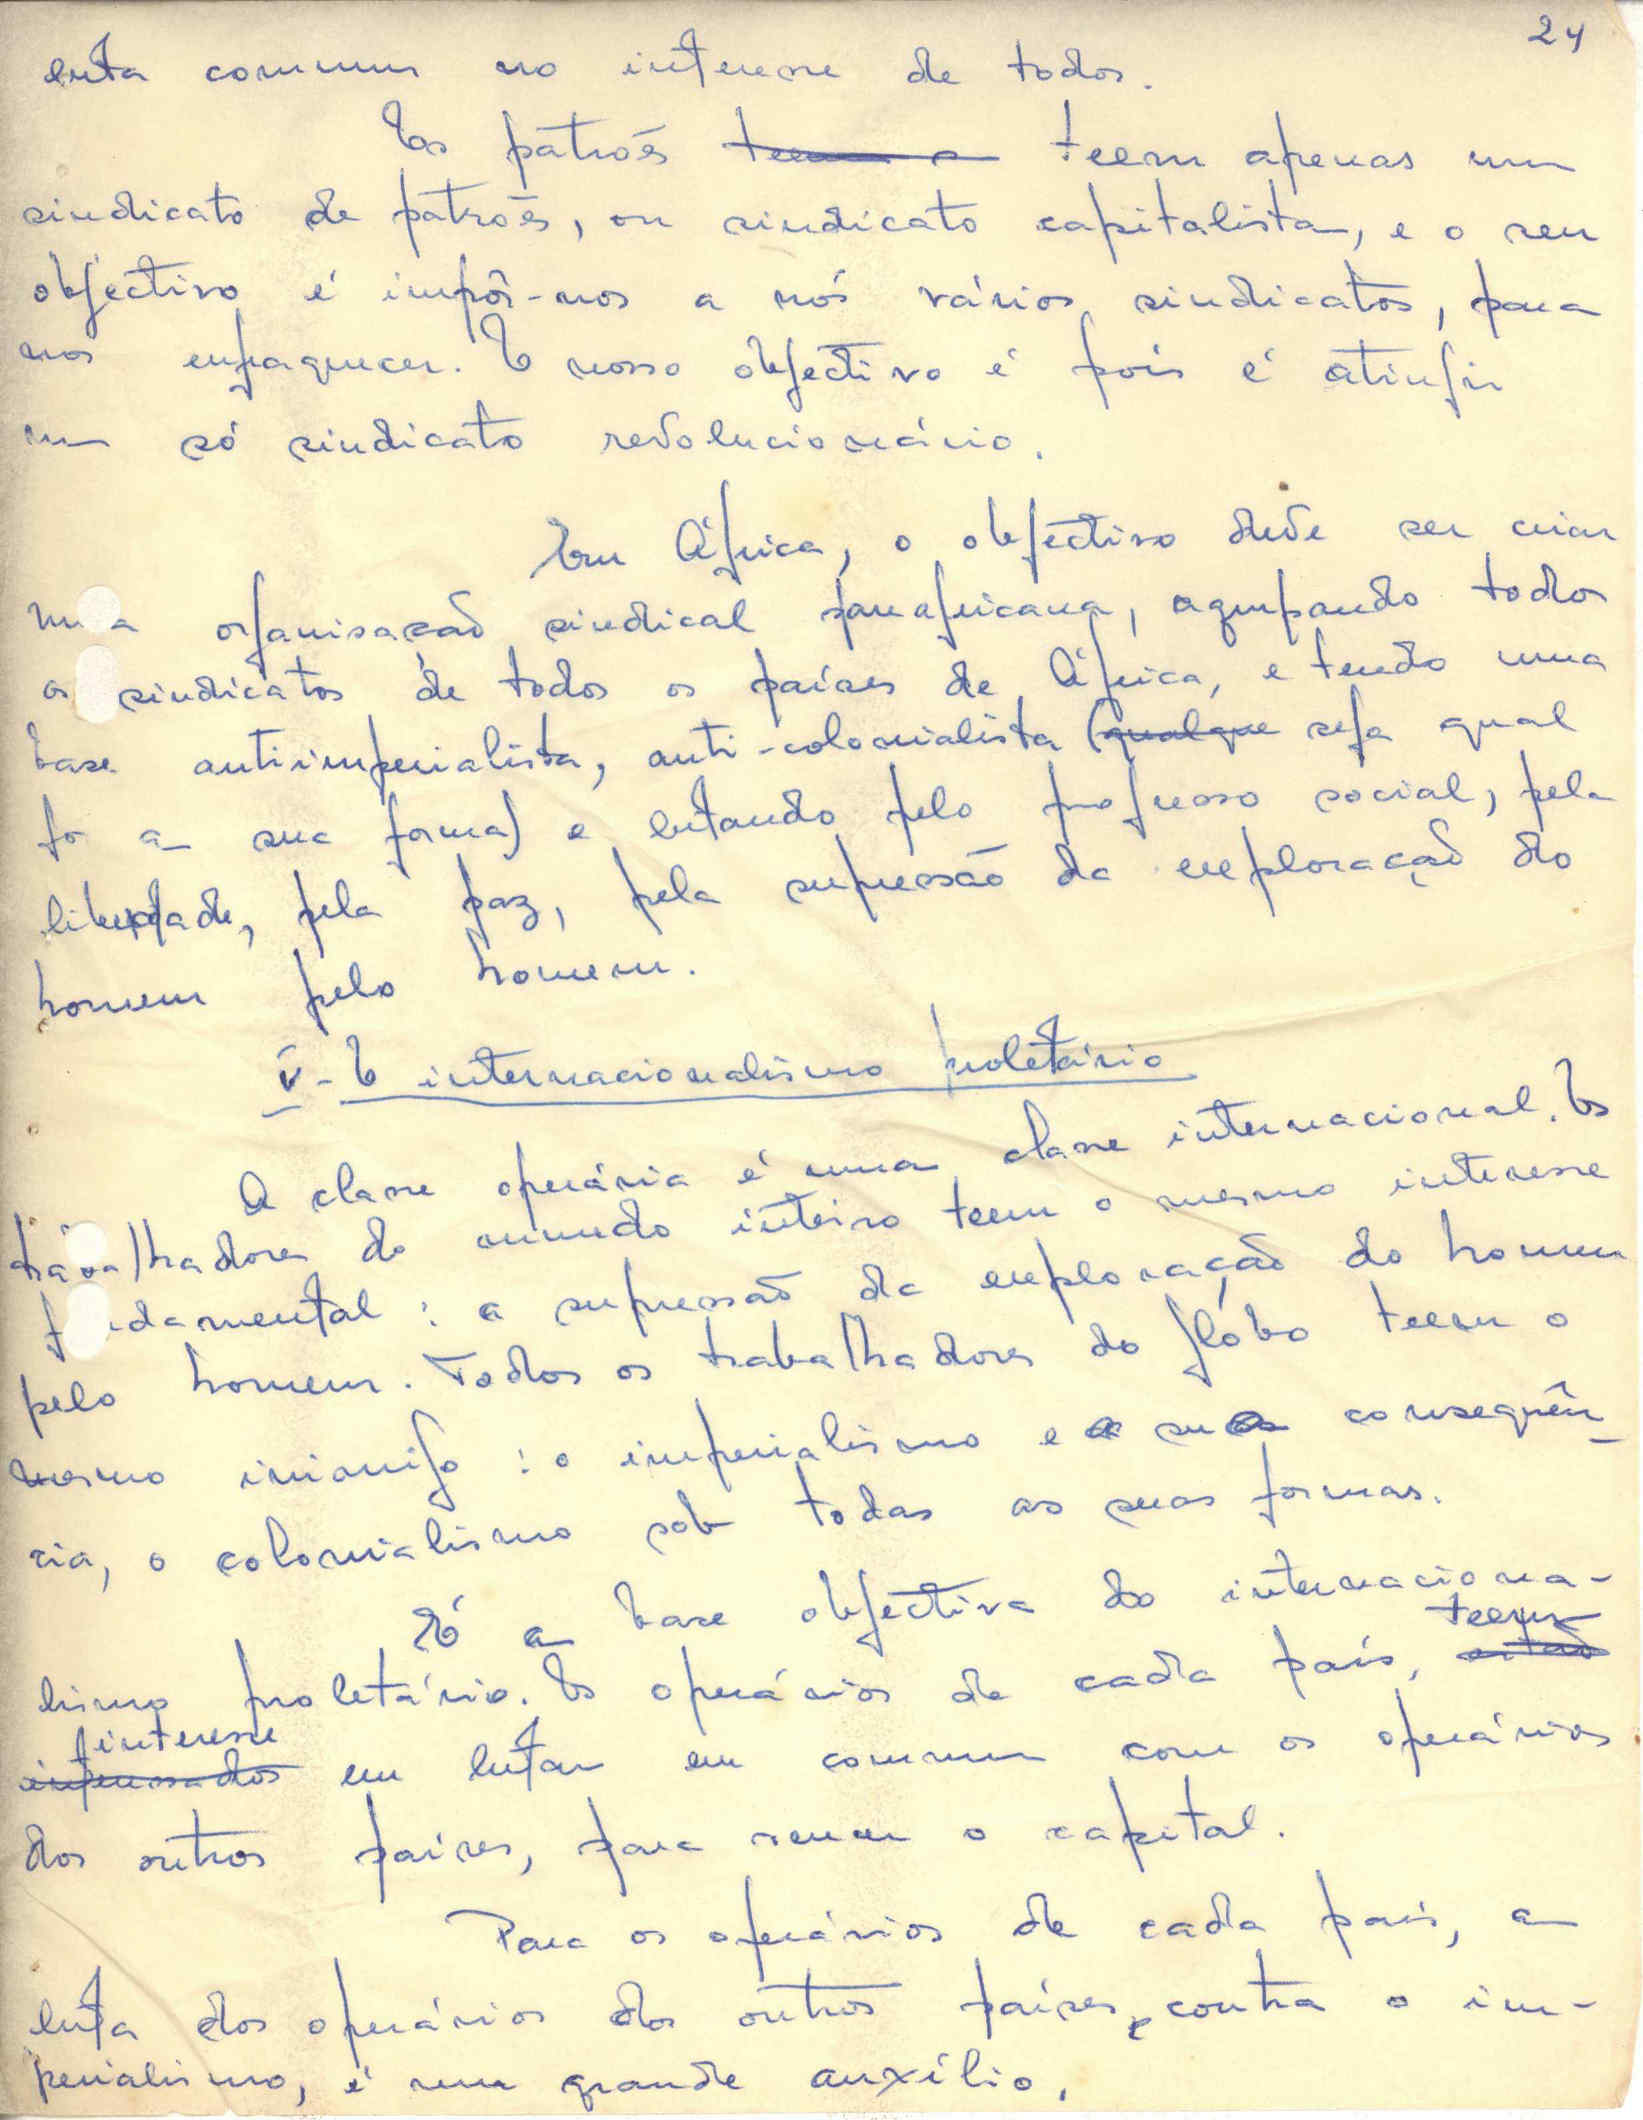 24
luta commum no interesse de todos.
Os patrões teem a teem apenas um
sindicato de patrões, ou sindicato capitalista, e o seu
objectivo é impôr-nos a nós vários sindicatos, para
nos enfraquecer. O nosso objectivo é pois é atinjir
um só sindicato revolucionário.
Em África, o objectivo deve ser criar
uma organisação sindical panafricana, agrupando todos
os sindicatos de todos os países de África, e tendo uma
base antiimperialista, anti-colonialista (qualque seja qual
fôr a sua forma) e lutando pelo progresso social, pela
liberdade, pela paz, pela supressão da exploração do
homem pelo homem.
V - O internacionalismo proletário
A classe operária é uma classe internacional. Os
trabalhadores do mundo inteiro teem o mesmo interesse
fundamental : a supressão da exploração do homem
pelo homem. Todos os trabalhadores do glóbo teem o
mesmo inimigo : o imperialismo e a sua consequên-
cia, o colonialismo sob todas as suas formas.
É a base objectiva do internaciona-
teem
lismo proletário. Os operários de cada país, estão
interesse
interessados em lutar em commum com os operários
dos outros países, para vencer o capital.
Para os operários de cada país, a
luta dos operários dos outros países, contra o im-
perialismo, é um grande auxílio.